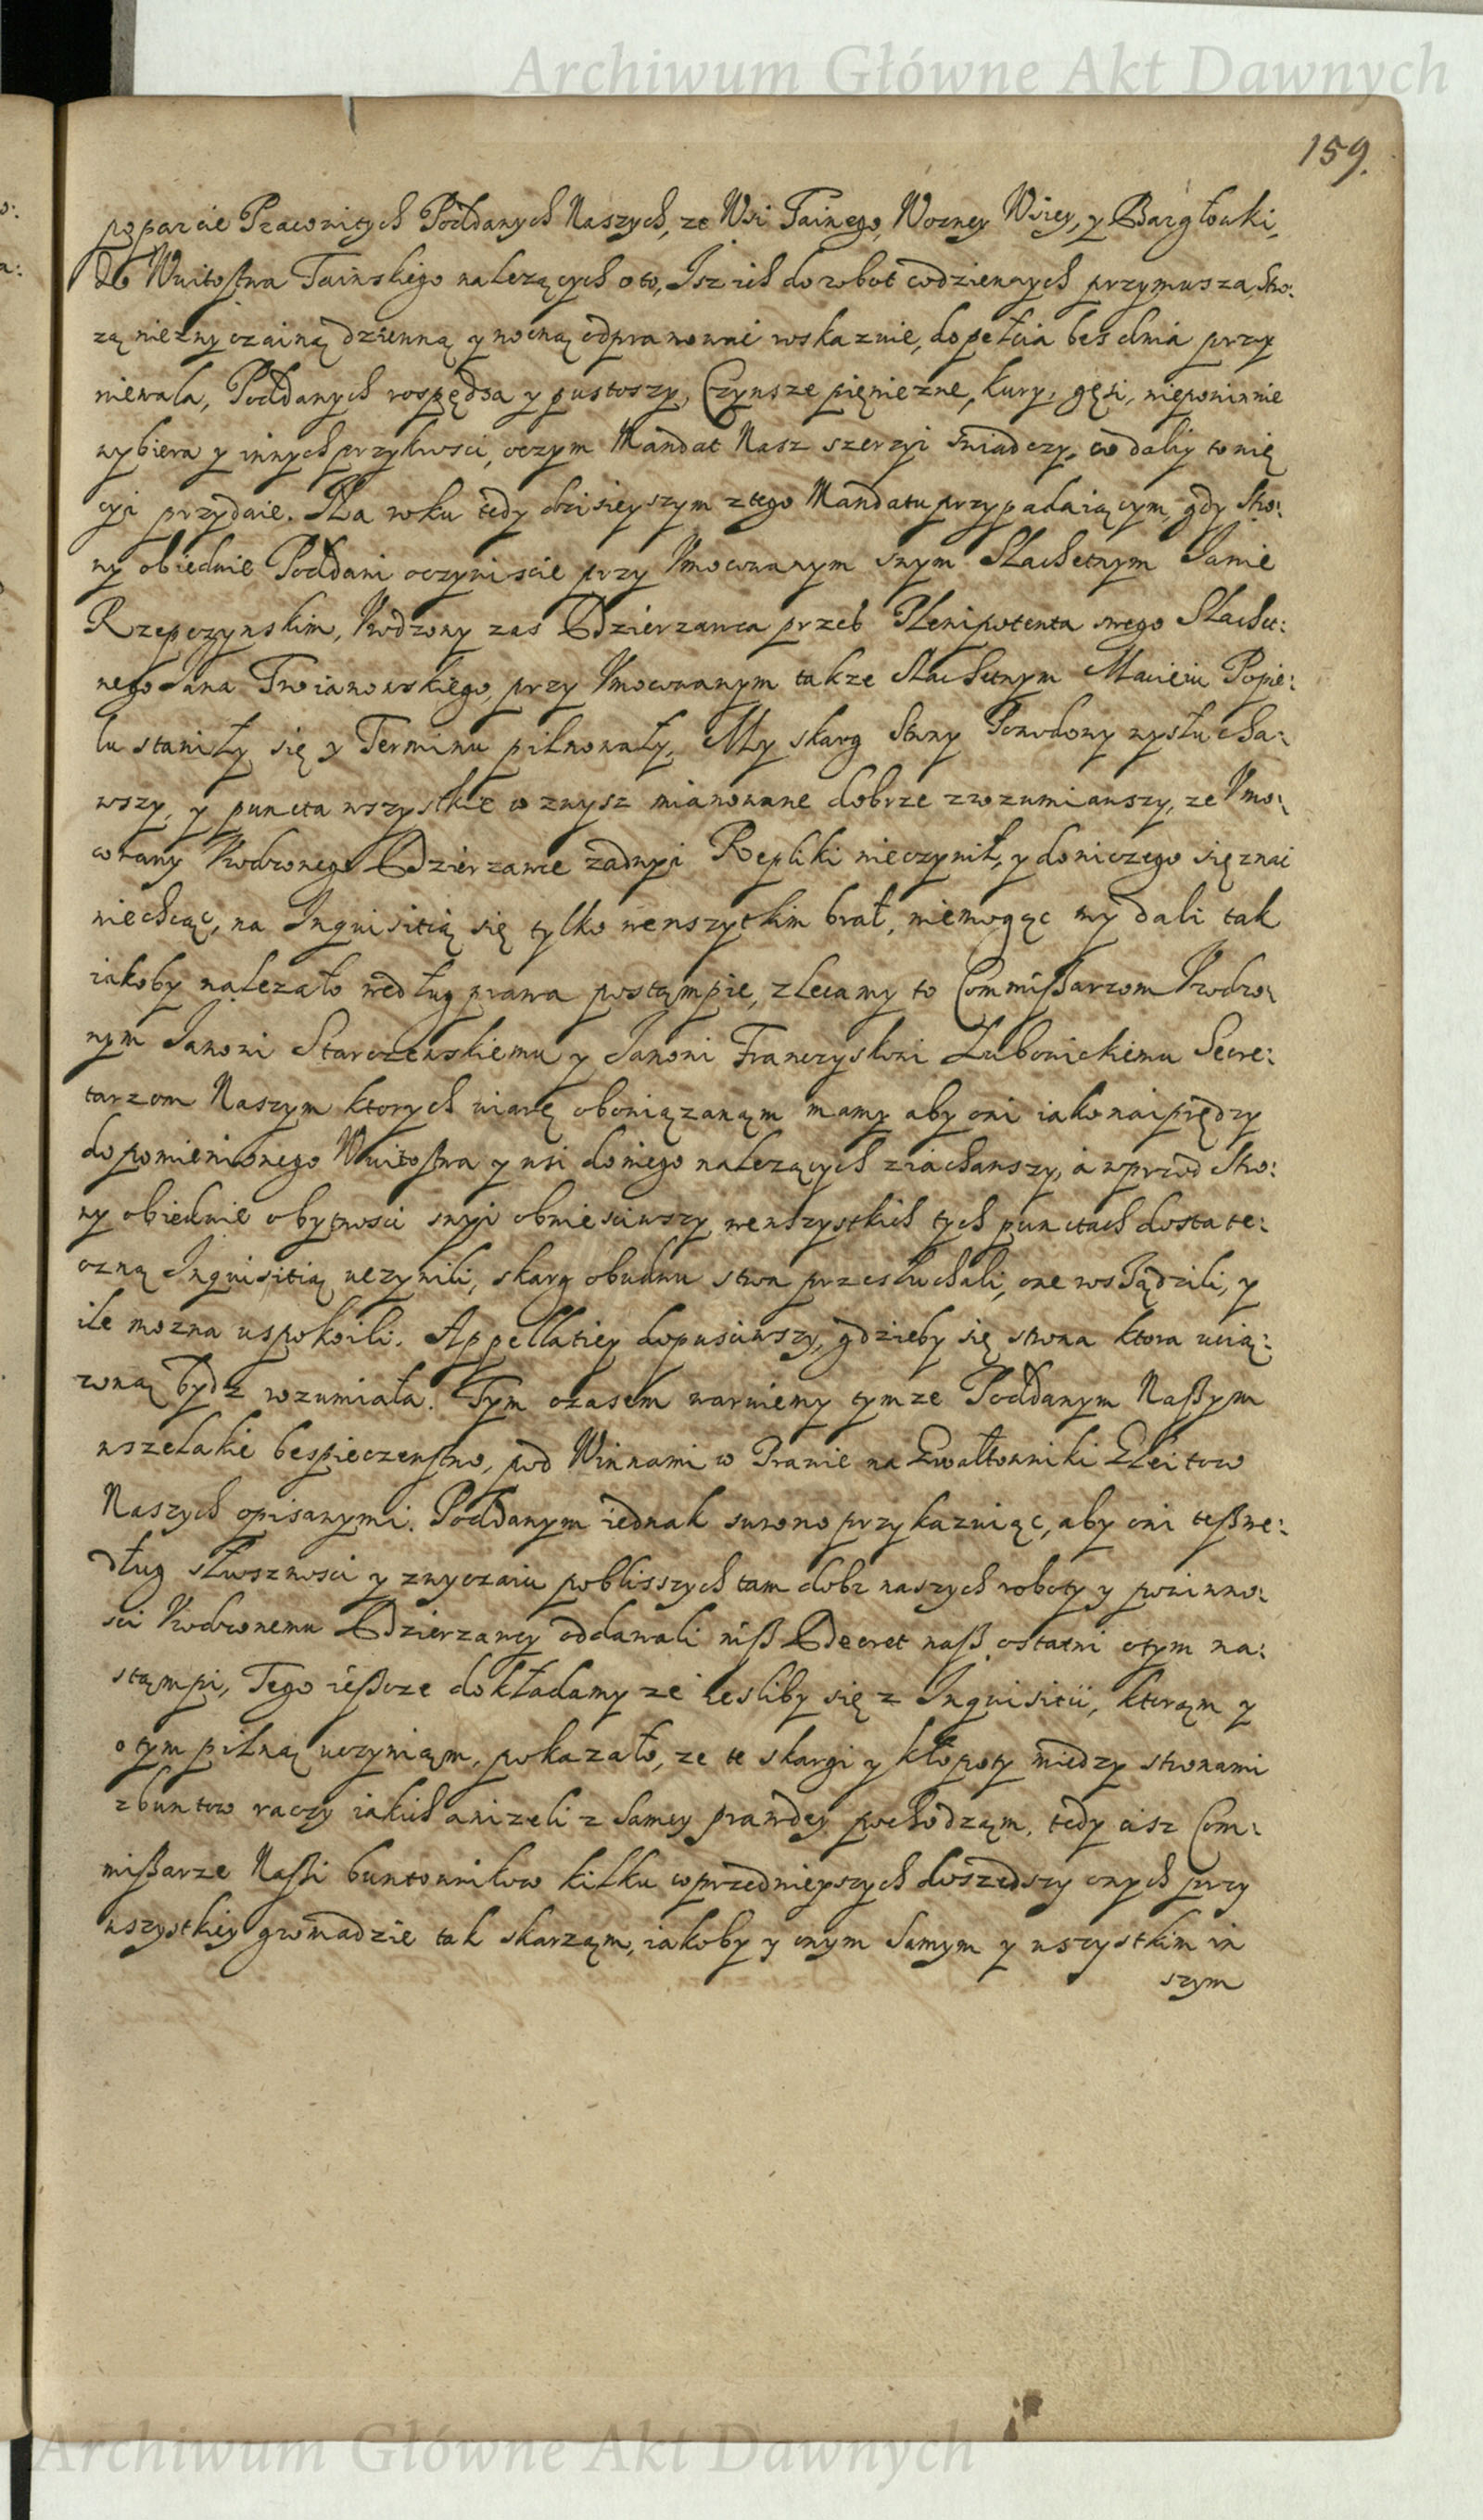 Archiwum Główne Akt Dawnych
159.
poparcie Pracowitych Poddanych Naszych, ze Wsi Tainego, Wozney Wsiey, y Bargłowki,
do Wuitostwa Tainskiego nalezących oto, Isz ich do robot codziennych przymusza, stro:
zą niezwyczainą dzienną y nocną odprawowac wskazuie, do pełcia bes dnia przy
niewala, Poddanych rospędza y pustoszy, Czynsze pięniezne, kury, gęsi, niepowinnie
wybiera y innych przykrosci, oczym Mandat Nasz szerzyi swiadczy, co daliy to nię
cyi przydaie. Na roku tedy dzisieyszym z tego Mandatu przypadaiącym, gdy Stro:
ny obiedwie Poddani oczywiscie przy Vmocowanym swym Szlachetnym Janie
Rzepczynskim, Vrodzony zas Dzierzawca przes Plenipotenta swego Szlache:
nego Jana Troianowskiego, przy Vmocowanym takze Szlachetnym Macieiu Popie:
lu staniły się y Terminu pilnowały, My skarg Strony Powodowy wysłucha:
wszy, y puncta wszystkie wzwysz mianowane dobrze zrozumiawszy, ze Vmo:
cowany Vrodzonego Dzierzawce zadnyi Repliki nieczynił, y doniczego się znac
niechcąc, na Inquisitią się tylko wewszytkim brał, niemogąc my dali tak
iakoby nalezało według prawa postąmpic, zlecamy to Commissarzom Vrodzo:
nym Janowi Starczewskiemu y Janowi Franczyskowi Lubowickiemu Secre:
tarzom Naszym ktorych wiarę obowiązanąm mamy aby oni iako naiprędzy
do pomienionego Wuitostwa y wsi doniego nalezących ziachawszy, a wprzod Stro:
ny obiedwie obytnosci swyi obwiesciwszy wewszystkich tych punctach dostate:
czną Inquisitią uczynili, skarg obudwu stron przesłuchali, one rossądzili, y
ile mozna uspokoili. Appellatiey dopusciwszy, gdzieby się strona ktora ucią:
zoną bydz rozumiała. Tym czasem waruiemy tymze Poddanym Naszym
wszelakie bespieczenstwo, pod Winnami w Prawie na Gwałtowniki Gleitow
Naszych opisanymi. Poddanym iednak surowo przykazuiąc, aby oni tesz we:
dług słusznosci y zwyczaiu poblisszych tam dobr naszych roboty y powinno:
sci Vrodzonemu Dzierzawcy oddawali nisz Decret nasz ostatni otym na:
stąmpi, Tego ieszcze dokładamy ze iesliby się z Inquisitii, ktorąm y
otym pilną uczyniąm, pokazało, ze te skargi y kłopoty między stronami
z buntow raczy iakich anizeli z samey prawdey pochodząm, tedy cisz Com:
missarze Naszi buntownikow kilku coprzednieyszych doszedszy onych przy
wszystkiey gromadzie tak skarząm, iakoby y onym samym y wszystkim in
szym
Archiwum Główne Akt Dawnych